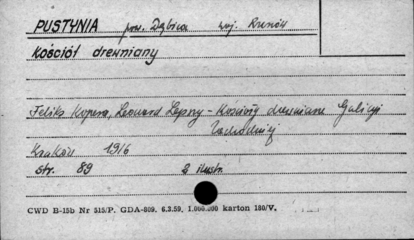 PUSTYNIA pow. Dębica woj. Rzeszów
Kościół drewniany
Feliks Kopera, Leonard Lepszy - Kościoły drewniane Galicji
Zachodniej
Kraków 1916
str. 89 2 ilustr.
CWD B-15b Nr 515/P. GDA-809. 6.3.59. 1.000.000 karton 180/V.